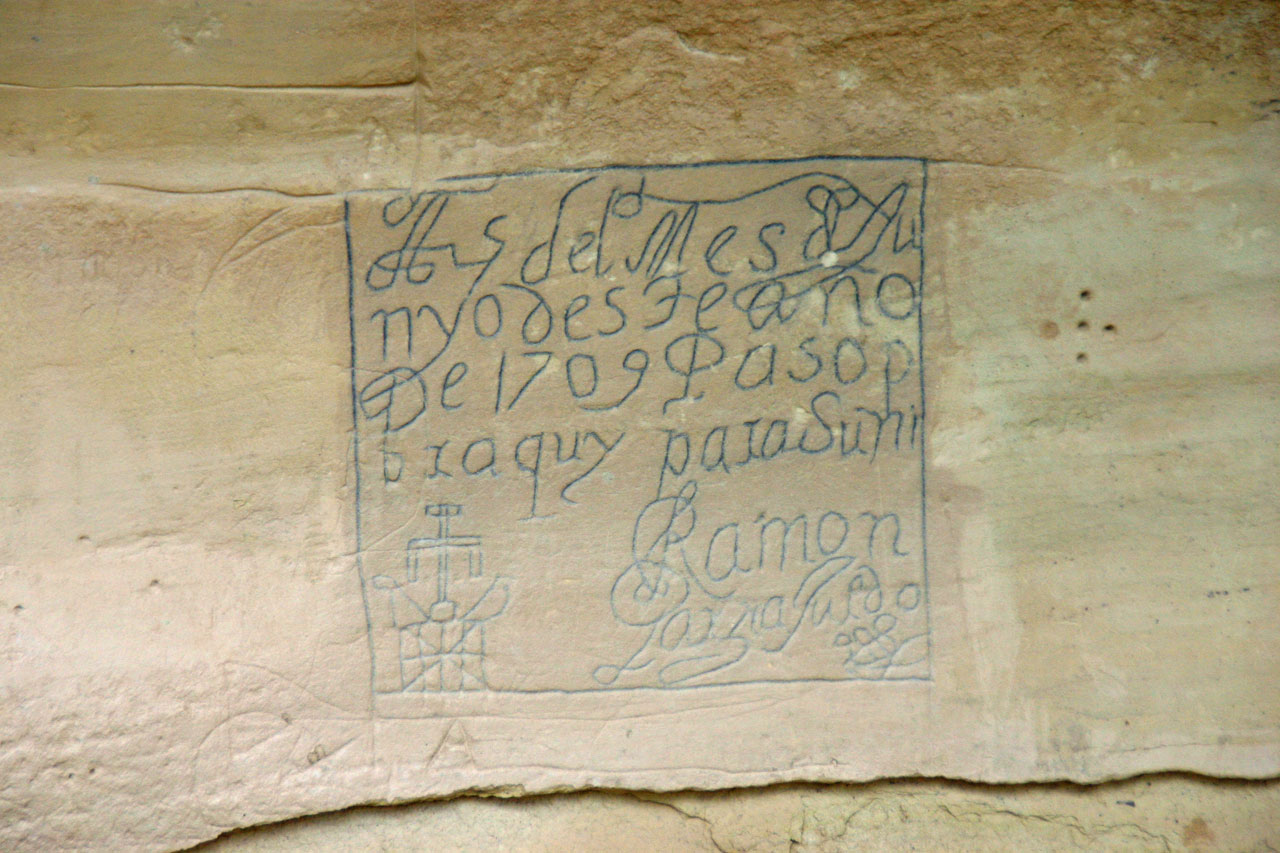 A y 5 del Mes d Ju
nyo deste año
De 1709 Paso p
or aquy para Suñi
Ramon
Garzia Jurado
R A